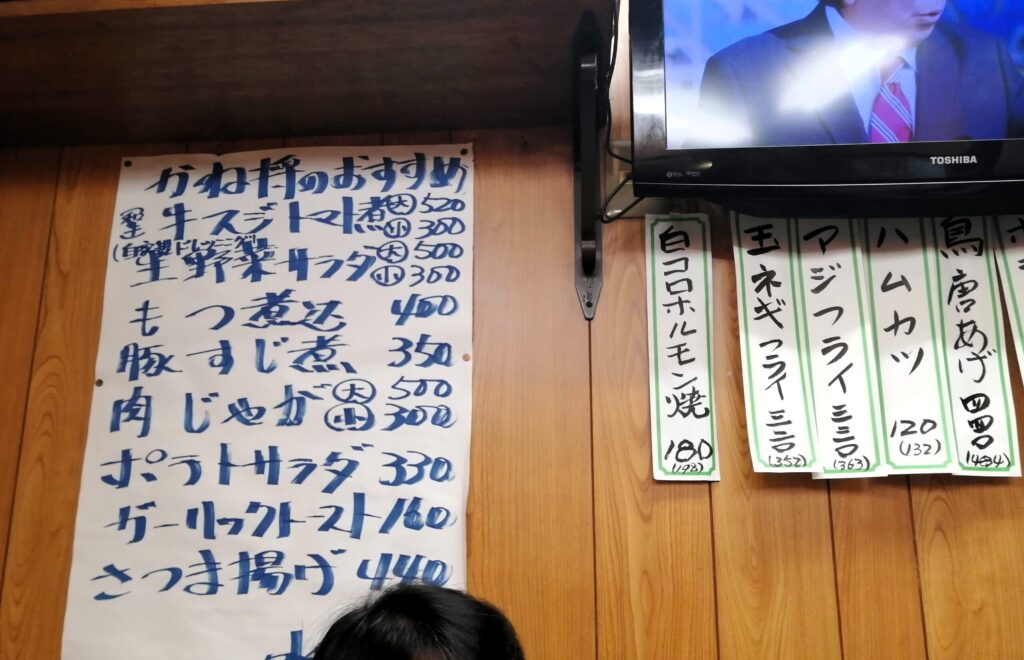 かね将のおすすめ
牛スジトマト煮 大 520
小 300
(自家製ドレッシング)
生野菜サラダ 大 500
小 300
もつ煮込 400
豚すじ煮 350
肉じゃが 大 500
小 300
ポテトサラダ 330
ガーリックトースト 160
さつま揚げ 440
TOSHIBA
白コロホルモン焼 180
(198)
玉ネギフライ 三二〇
(352)
アジフライ 三三〇
(363)
ハムカツ 120
(132)
鳥唐あげ 四四〇
(484)